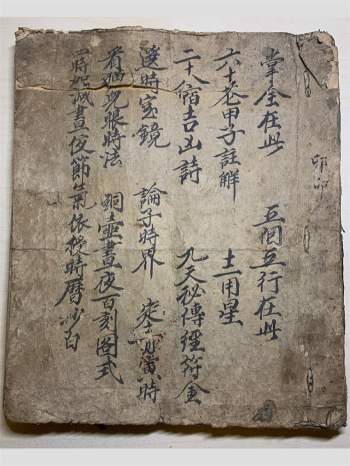 掌金在此 五個五行在此
六十花甲子註解 土用星
二十八宿吉凶詩 九天秘傳經符金
選時宝鏡 論子時界 定寅時
看猫兒眼時法 銅壺晝夜百刻图式
時加減晝夜節氣依授時曆妙白